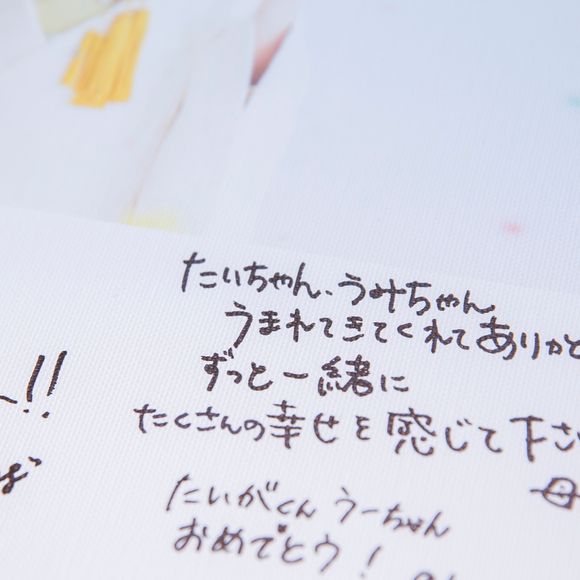 たいちゃん、うみちゃん
うまれてきてくれてありがと
ずっと一緒に
たくさんの幸せを感じて下さ
母
たいがくん うーちゃん
おめでとう!
!!